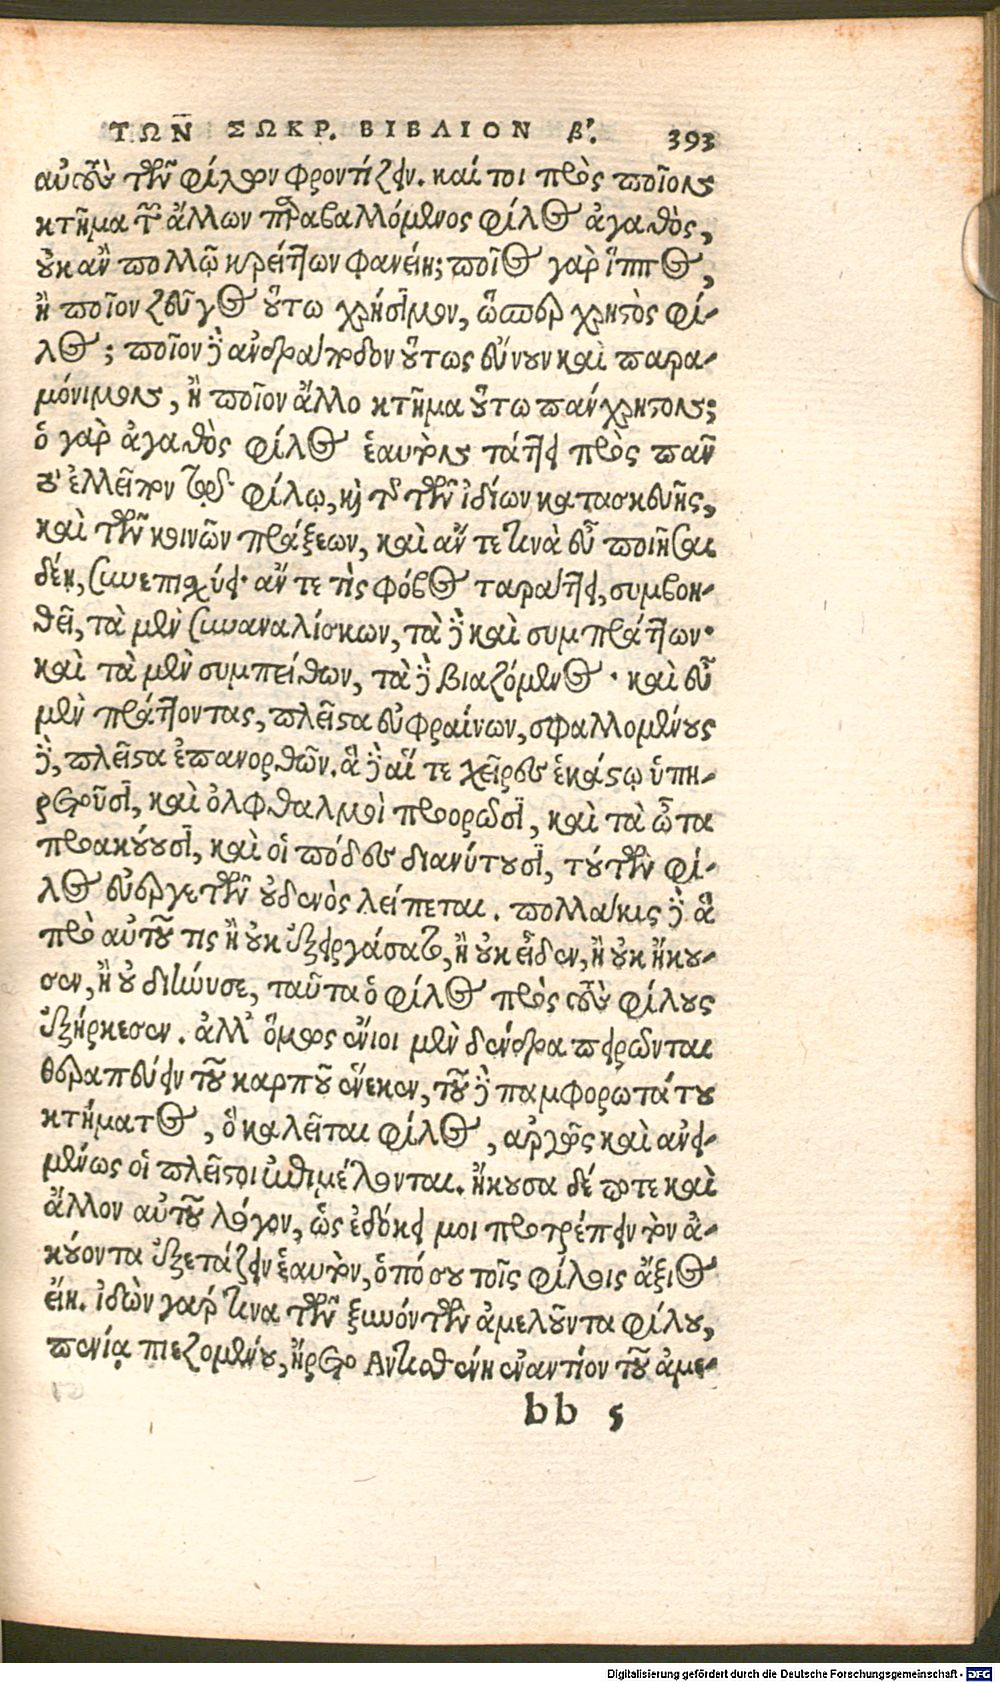 ΤΩΝ ΣΩΚΡ. ΒΙΒΛΙΟΝ β'. 393
αὐτοὺς τῶν φίλων φροντίζειν. καί τοι πρὸς ποῖον
κτῆμα τῶν ἄλλων παραβαλλόμενος φίλος ἀγαθὸς,
οὐκ ἂν πολλῷ κρείττων φανείη; ποῖος γὰρ ἵππος,
ἢ ποῖον ζεῦγος οὕτω χρήσιμον, ὥσπερ χρηστὸς φί-
λος; ποῖον δὲ ἀνδράποδον οὕτως εὔνουν καὶ παρα-
μόνιμον, ἢ ποῖον ἄλλο κτῆμα οὕτω πάγχρηστον;
ὁ γὰρ ἀγαθὸς φίλος ἑαυτὸν τάττει πρὸς πᾶν
τὸ ἐλλεῖπον τῷ φίλῳ, καὶ τῆς τῶν ἰδίων κατασκευῆς,
καὶ τῶν κοινῶν πράξεων, καὶ ἄν τε τινὰ εὖ ποιῆσαι
δέῃ, συνεπισχύει· ἄν τε τὶς φόβος ταράττει, συμβοη-
θεῖ, τὰ μὲν συναναλίσκων, τὰ δὲ καὶ συμπράττων·
καὶ τὰ μὲν συμπείθων, τὰ δὲ βιαζόμενος· καὶ εὖ
μὲν πράττοντας, πλεῖστα εὐφραίνων, σφαλλομένους
δὲ, πλεῖστα ἐπανορθῶν. ἃ δὲ αἵ τε χεῖρες ἑκάστῳ ὑπη-
ρετοῦσι, καὶ ὀλφθαλμοὶ προορῶσι, καὶ τὰ ὦτα
προακούουσι, καὶ οἱ πόδες διανύτουσι, τούτων φί-
λος εὐεργετῶν οὐδενὸς λείπεται. πολλάκις δὲ ἃ
πρὸ αὑτοῦ τις ἢ οὐκ ἐξειργάσατο, ἢ οὐκ εἶδεν, ἢ οὐκ ἤκου-
σεν, ἢ οὐ διήνυσε, ταῦτα ὁ φίλος πρὸς τοὺς φίλους
ἐξήρκεσεν. ἀλλ' ὅμως ἔνιοι μὲν δένδρα πειρῶνται
θεραπεύειν τοῦ καρποῦ ἕνεκεν, τοῦ δὲ παμφορωτάτου
κτήματος, ὃ καλεῖται φίλος, ἀργῶς καὶ ἀνει-
μένως οἱ πλεῖστοι ἐπιμέλονται. ἤκουσα δέ ποτε καὶ
ἄλλον αὐτοῦ λόγον, ὡς ἐδόκει μοι προτρέπειν τὸν ἀ-
κούοντα ἐξετάζειν ἑαυτὸν, ὁπόσου τοῖς φίλοις ἄξιος
εἴη. ἰδὼν γάρ τινα τῶν ξυνόντων ἀμελοῦντα φίλου,
πενίᾳ πιεζομένου, ἤρετο Ἀντισθένη ἐναντίον τοῦ ἀμε-
bb 5
Digitalisierung gefördert durch die Deutsche Forschungsgemeinschaft - DFG